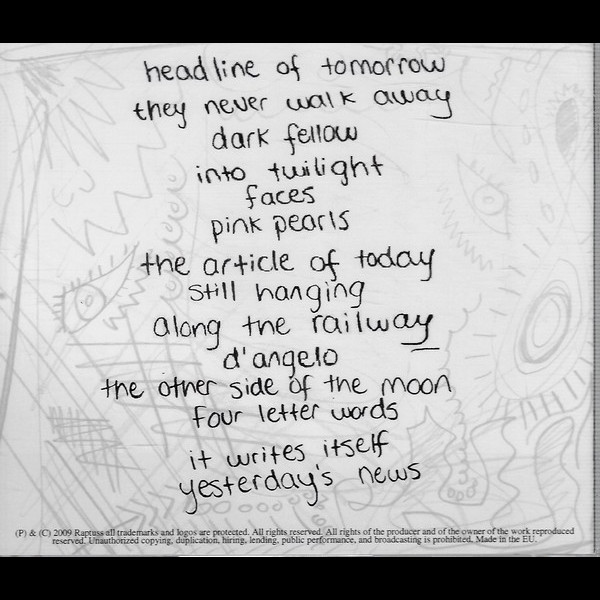 headline of tomorrow
they never walk away
dark fellow
into twilight
faces
pink pearls
the article of today
still hanging
along the railway
d'angelo
the other side of the moon
four letter words
it writes itself
yesterday's news
(P) & (C) 2009 Raptuss all trademarks and logos are protected. All rights reserved. All rights of the producer and of the owner of the work reproduced
reserved. Unauthorized copying, duplication, hiring, lending, public performance, and broadcasting is prohibited. Made in the EU.